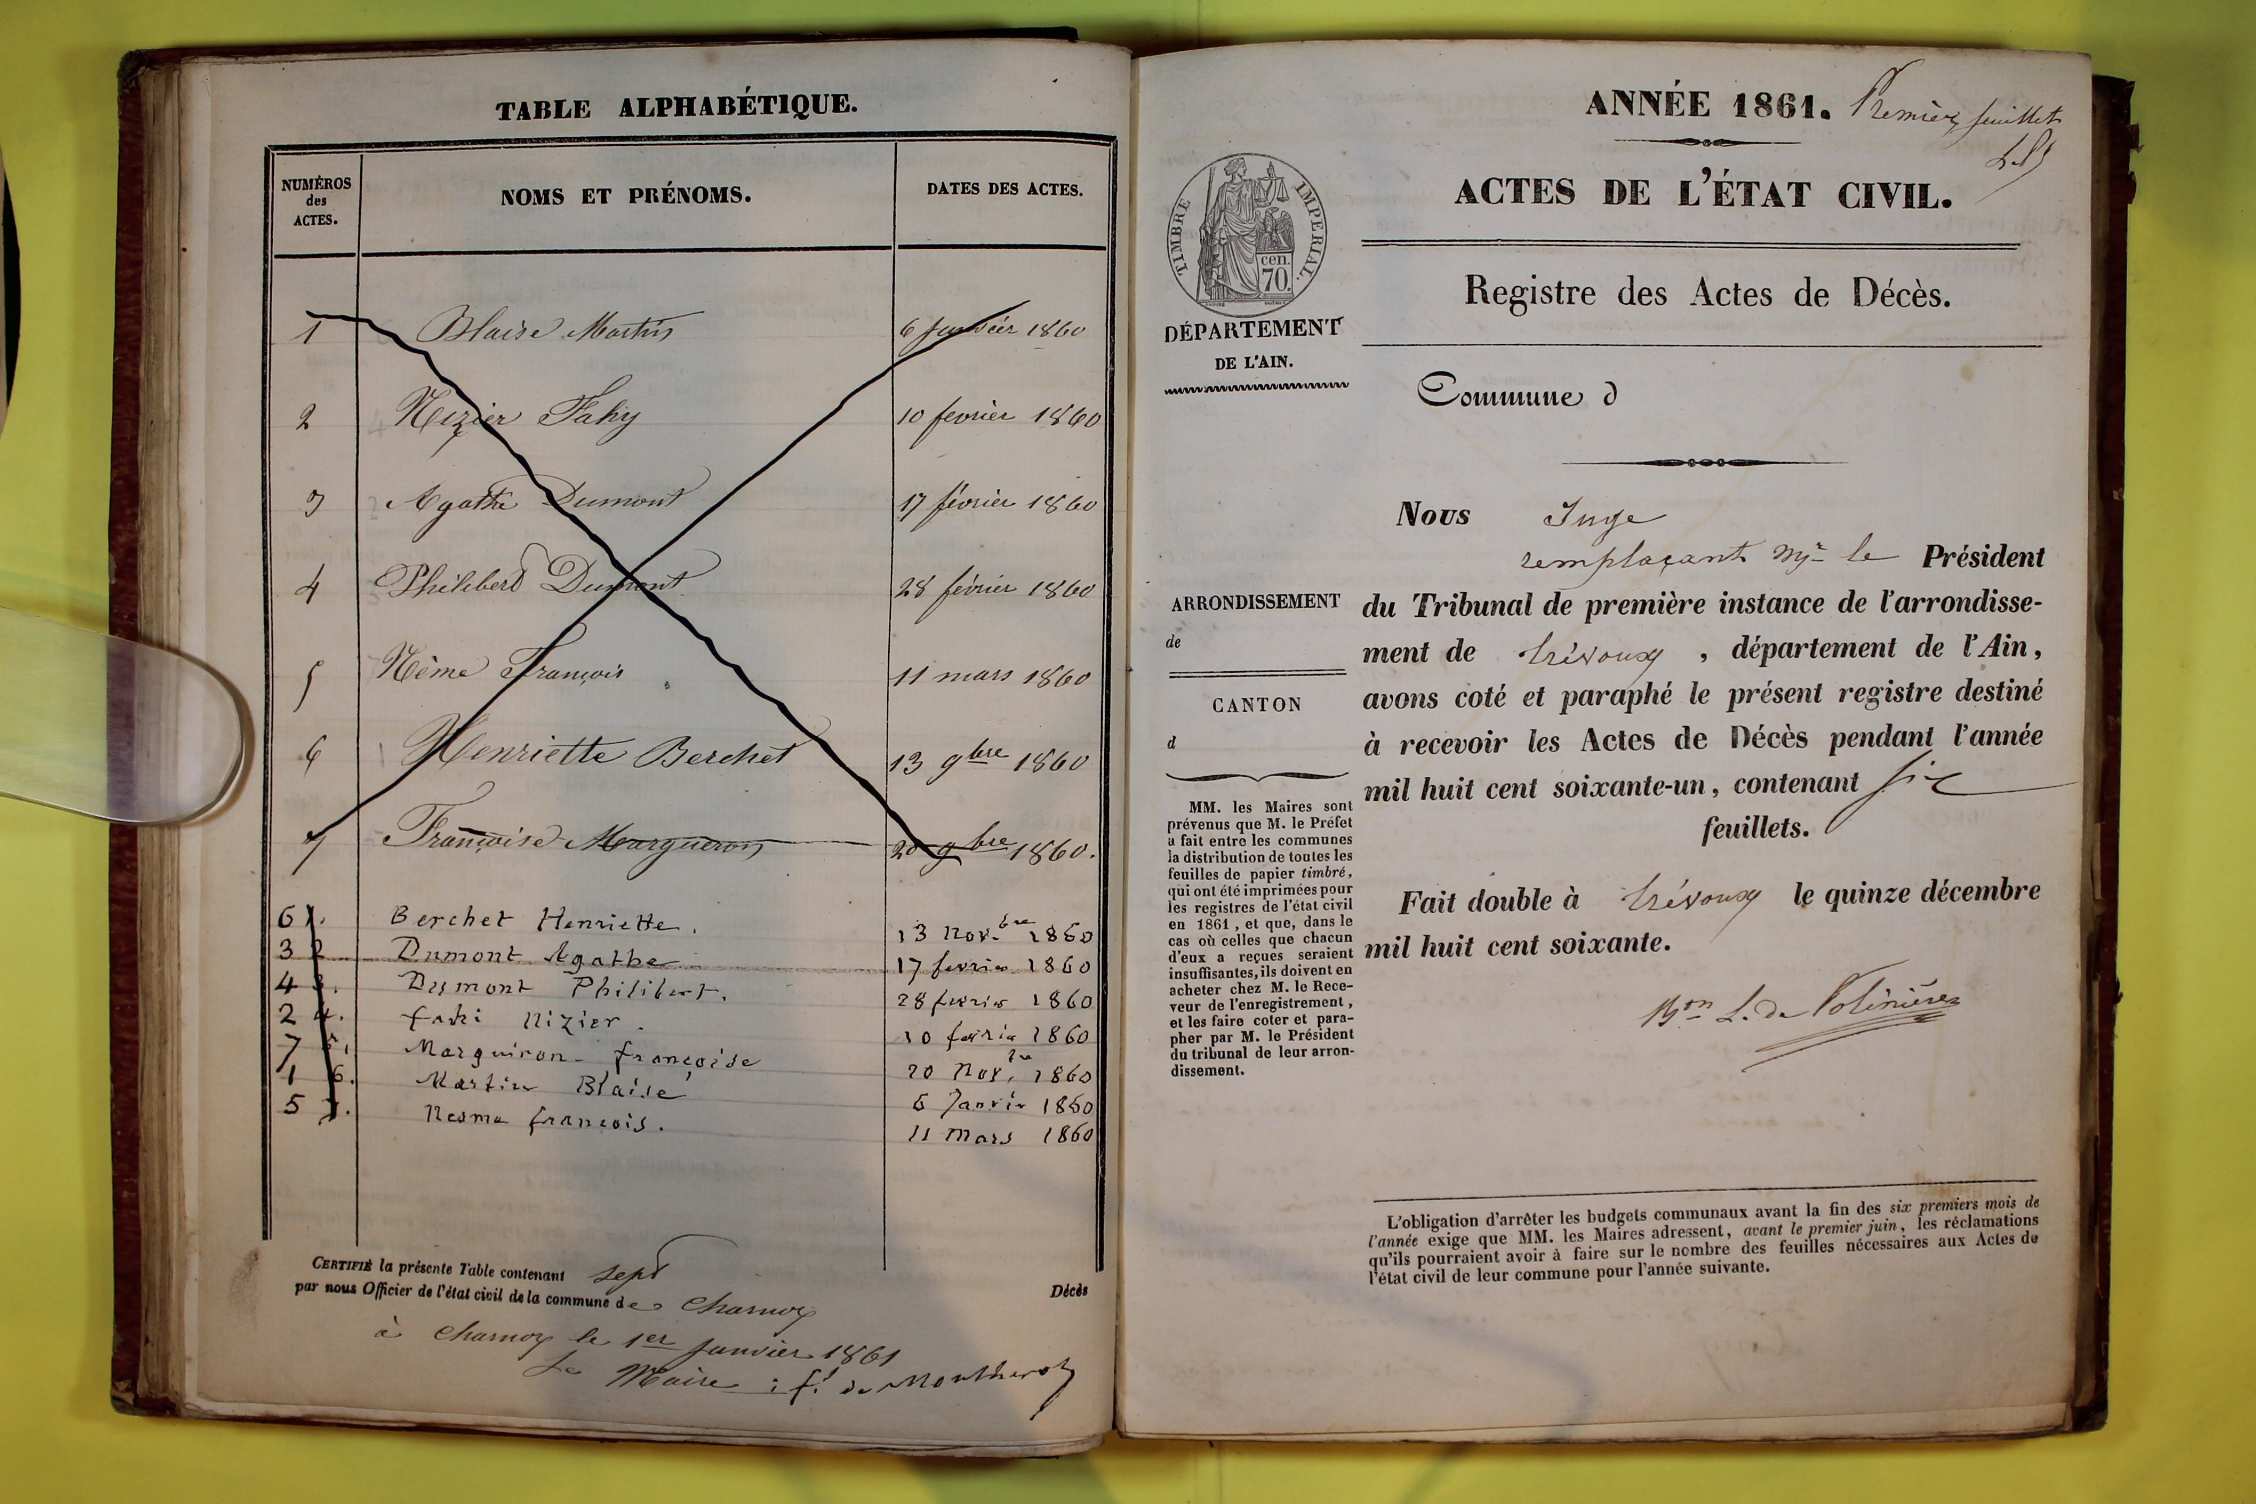 TABLE ALPHABÉTIQUE.
NUMÉROS des ACTES.
NOMS ET PRÉNOMS.
DATES DES ACTES.
1 Blaise Martin 6 janvier 1860
2 Nizier Fahy 10 fevrier 1860
3 Agathe Dumont 17 février 1860
4 Philibert Dumont 28 février 1860
5 Nême François 11 mars 1860
6 Henriette Berchet 13 9bre 1860
7 Françoise Margueron 20 9bre 1860.
6 1. Berchet Henriette. 13 Nov.bre 1860
3 2 Dumont Agathe 17 fevrier 1860
4 3. Dumont Philibert. 28 fevrier 1860
2 4. fahi Nizier. 10 fevrier 1860
7 5. Marguiron françoise 20 Nov.bre 1860
1 6. Martin Blaise 6 Janvier 1860
5 7. Nesme françois. 11 Mars 1860
CERTIFIÉ la présente Table contenant sept Décès
par nous Officier de l'état civil de la commune de Charnoz
à Charnoz le 1er janvier 1861
Le Maire : f.
ANNÉE 1861. Premier feuillet
ACTES DE L'ÉTAT CIVIL.
Registre des Actes de Décès.
TIMBRE IMPERIAL.
cen.
70.
DÉPARTEMENT
DE L'AIN.
Commune d
ARRONDISSEMENT
de
CANTON
d
MM. les Maires sont
prévenus que M. le Préfet
a fait entre les communes
la distribution de toutes les
feuilles de papier timbré,
qui ont été imprimées pour
les registres de l'état civil
en 1861, et que, dans le
cas où celles que chacun
d'eux a reçues seraient
insuffisantes, ils doivent en
acheter chez M. le Rece-
veur de l'enregistrement,
et les faire coter et para-
pher par M. le Président
du tribunal de leur arron-
dissement.
Nous Juge
remplaçant Mr le Président
du Tribunal de première instance de l'arrondisse-
ment de trévoux, département de l'Ain,
avons coté et paraphé le présent registre destiné
à recevoir les Actes de Décès pendant l'année
mil huit cent soixante-un, contenant six
feuillets.
Fait double à trévoux le quinze décembre
mil huit cent soixante.
Bon L. de Polinière
L'obligation d'arrêter les budgets communaux avant la fin des six premiers mois de
l'année exige que MM. les Maires adressent, avant le premier juin, les réclamations
qu'ils pourraient avoir à faire sur le nombre des feuilles nécessaires aux Actes de
l'état civil de leur commune pour l'année suivante.